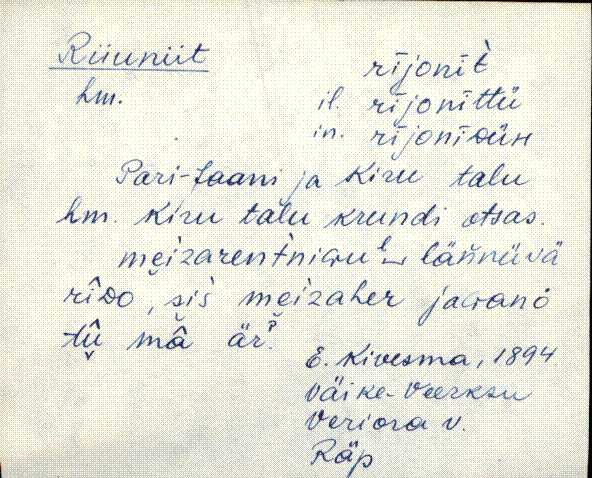 Riiuniit rījonìt̀
hm. il. rījonīttü
in. rījonīᴅün
Pari-Jaani ja Kiru talu
hm. Kiru talu krundi otsas.
lännüvä
rîᴅo, siš mɐizaher jaɢanȯ
tû mâ är?
E. Kivesma, 1894
Väike-Veerksu
Veriora v.
Räp